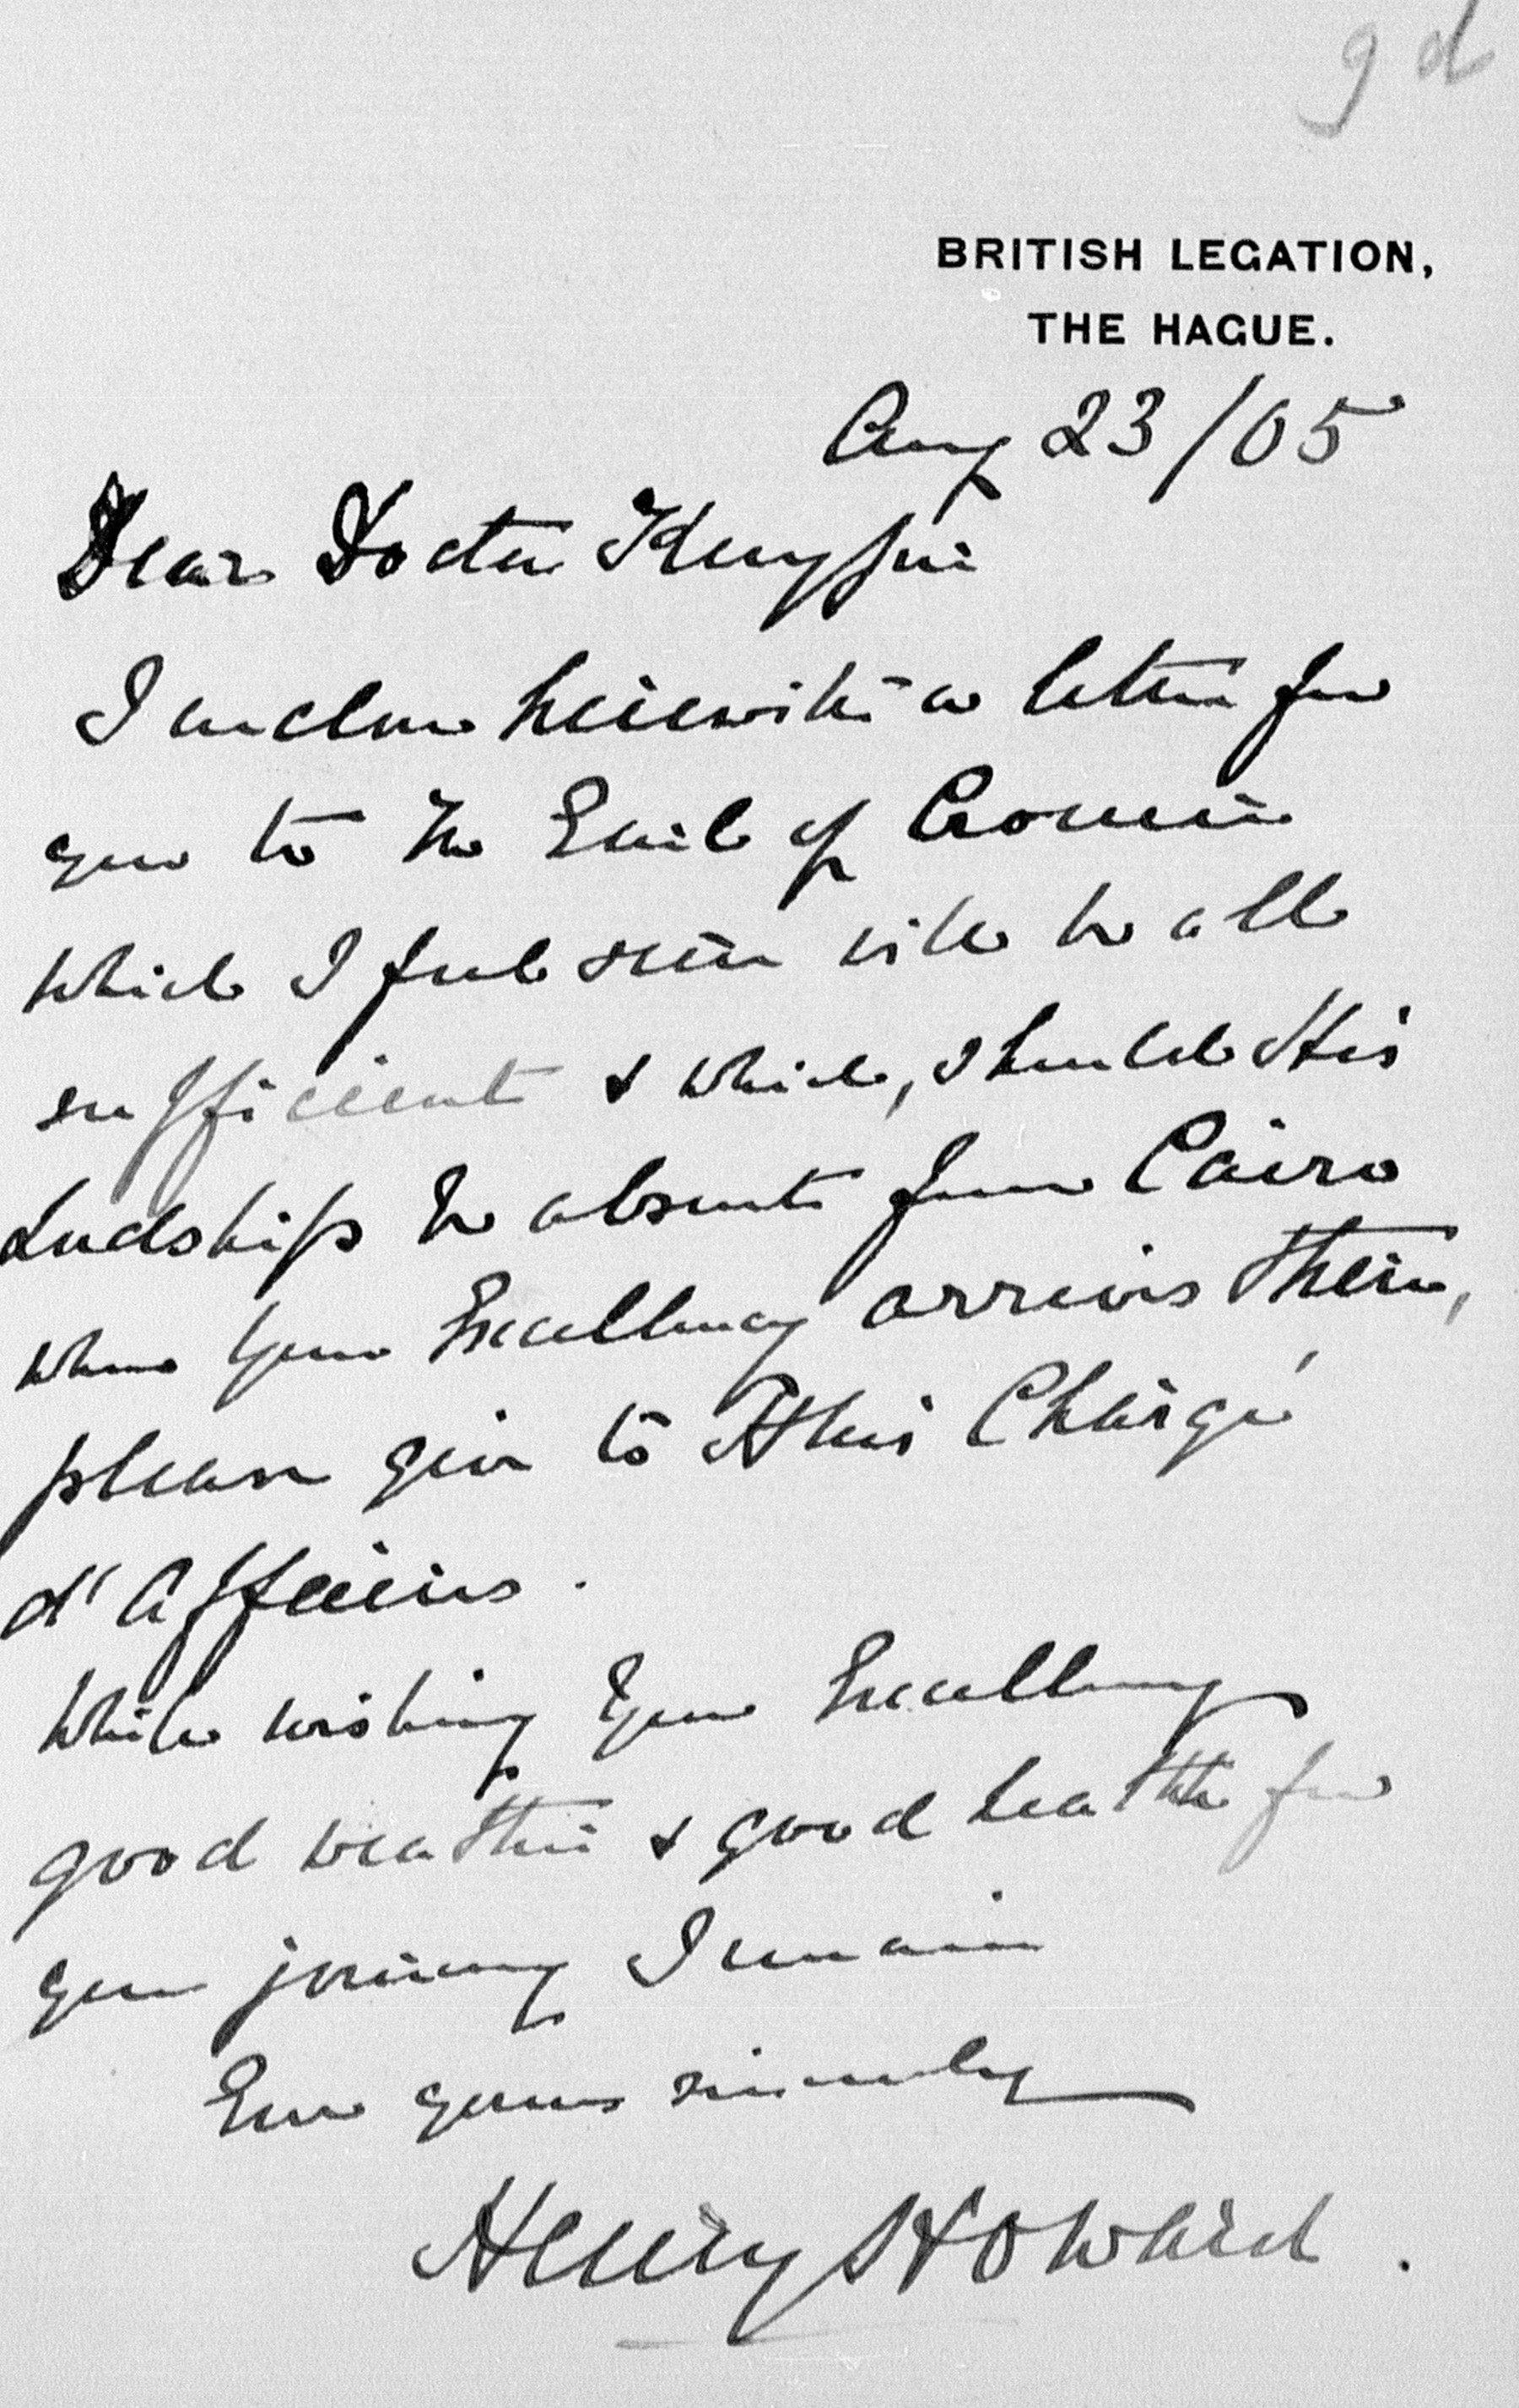 g d
BRITISH LEGATION,
THE HAGUE.
Aug 23/05
Dear Doctor Kuyper
I enclose herewith a letter for
you to the Earl of Cromer
which I feel sure will be all
sufficient & which, should His
Lordship be absent from Cairo
when Your Excellency arrives there,
please give to His Chargé
d'Affaires.
While wishing Your Excellency
good weather & good health for
your journey I remain
Ever yours sincerely
Henry Howard.